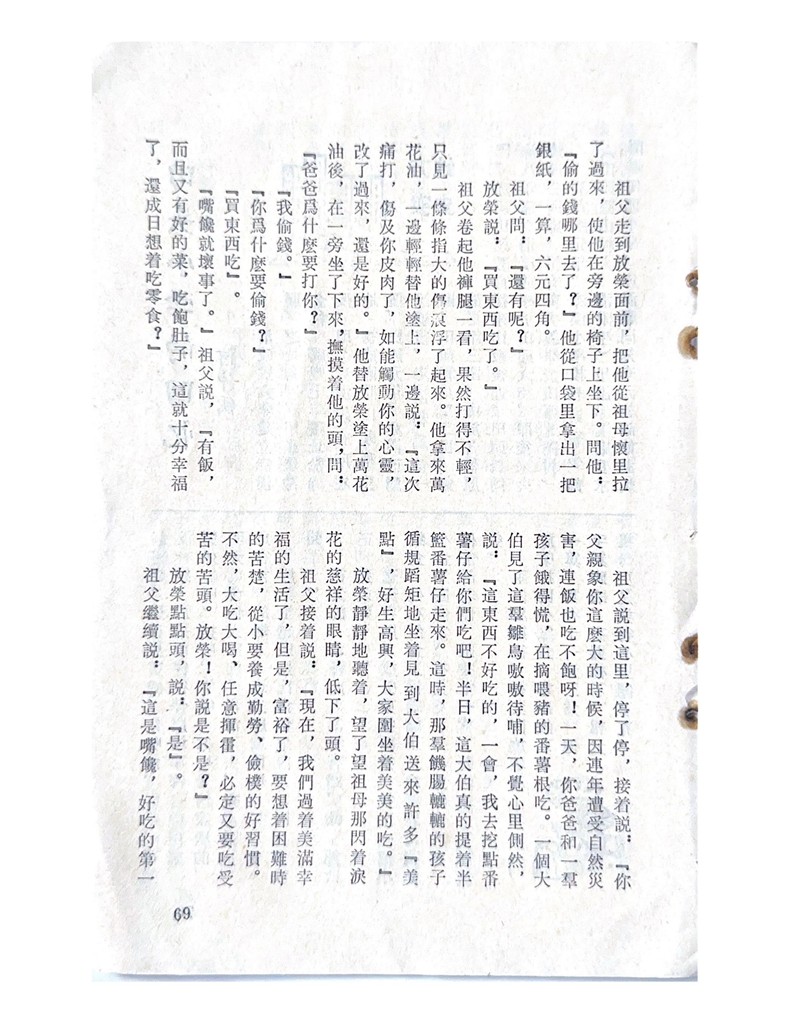 祖父走到放榮面前，把他從祖母懷里拉
了過來，使他在旁邊的椅子上坐下。問他：
『偷的錢哪里去了？』他從口袋里拿出一把
銀紙，一算，六元四角。
祖父問：『還有呢？』
放榮說：『買東西吃了。』
祖父卷起他褲腿一看，果然打得不輕，
只見一條條指大的傷痕浮了起來。他拿來萬
花油，一邊輕輕替他塗上，一邊說：『這次
痛打，傷及你皮肉了，如能觸動你的心靈，
改了過來，還是好的。』他替放榮塗上萬花
油後，在一旁坐了下來，撫摸着他的頭，問：
『爸爸爲什麽要打你？』
『我偷錢。』
『你爲什麽要偷錢？』
『買東西吃』。
『嘴饞就壞事了。』祖父說，『有飯，
而且又有好的菜，吃飽肚子，這就十分幸福
了，還成日想着吃零食？』
祖父說到這里，停了停，接着說：『你
父親象你這麽大的時候，因連年遭受自然災
害，連飯也吃不飽呀！一天，你爸爸和一羣
孩子餓得慌，在摘喂豬的番薯根吃。一個大
伯見了這羣雛鳥嗷嗷待哺，不覺心里惻然，
說：『這東西不好吃的，一會，我去挖點番
薯仔給你們吃吧！半日，這大伯真的提着半
籃番薯仔走來。這時，那羣饑腸轆轆的孩子
循規蹈矩地坐着見到大伯送來許多『美
點』，好生高興，大家圍坐着美美的吃。』
放榮靜靜地聽着，望了望祖母那閃着淚
花的慈祥的眼睛，低下了頭。
祖父接着說：『現在，我們過着美滿幸
福的生活了，但是，富裕了，要想着困難時
的苦楚，從小要養成勤勞、儉樸的好習慣。
不然，大吃大喝、任意揮霍，必定又要吃受
苦的苦頭。放榮！你說是不是？』
放榮點點頭，說：『是』。
祖父繼續說：『這是嘴饞，好吃的第一
69